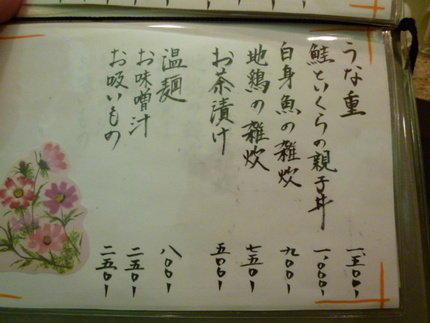 うな重 一、五〇〇-
鮭といくらの親子丼 一、〇〇〇-
白身魚の雑炊 九〇〇-
地鶏の雑炊 七五〇-
お茶漬け 五〇〇-
温麺 八〇〇-
お味噌汁 二五〇-
お吸いもの 二五〇-